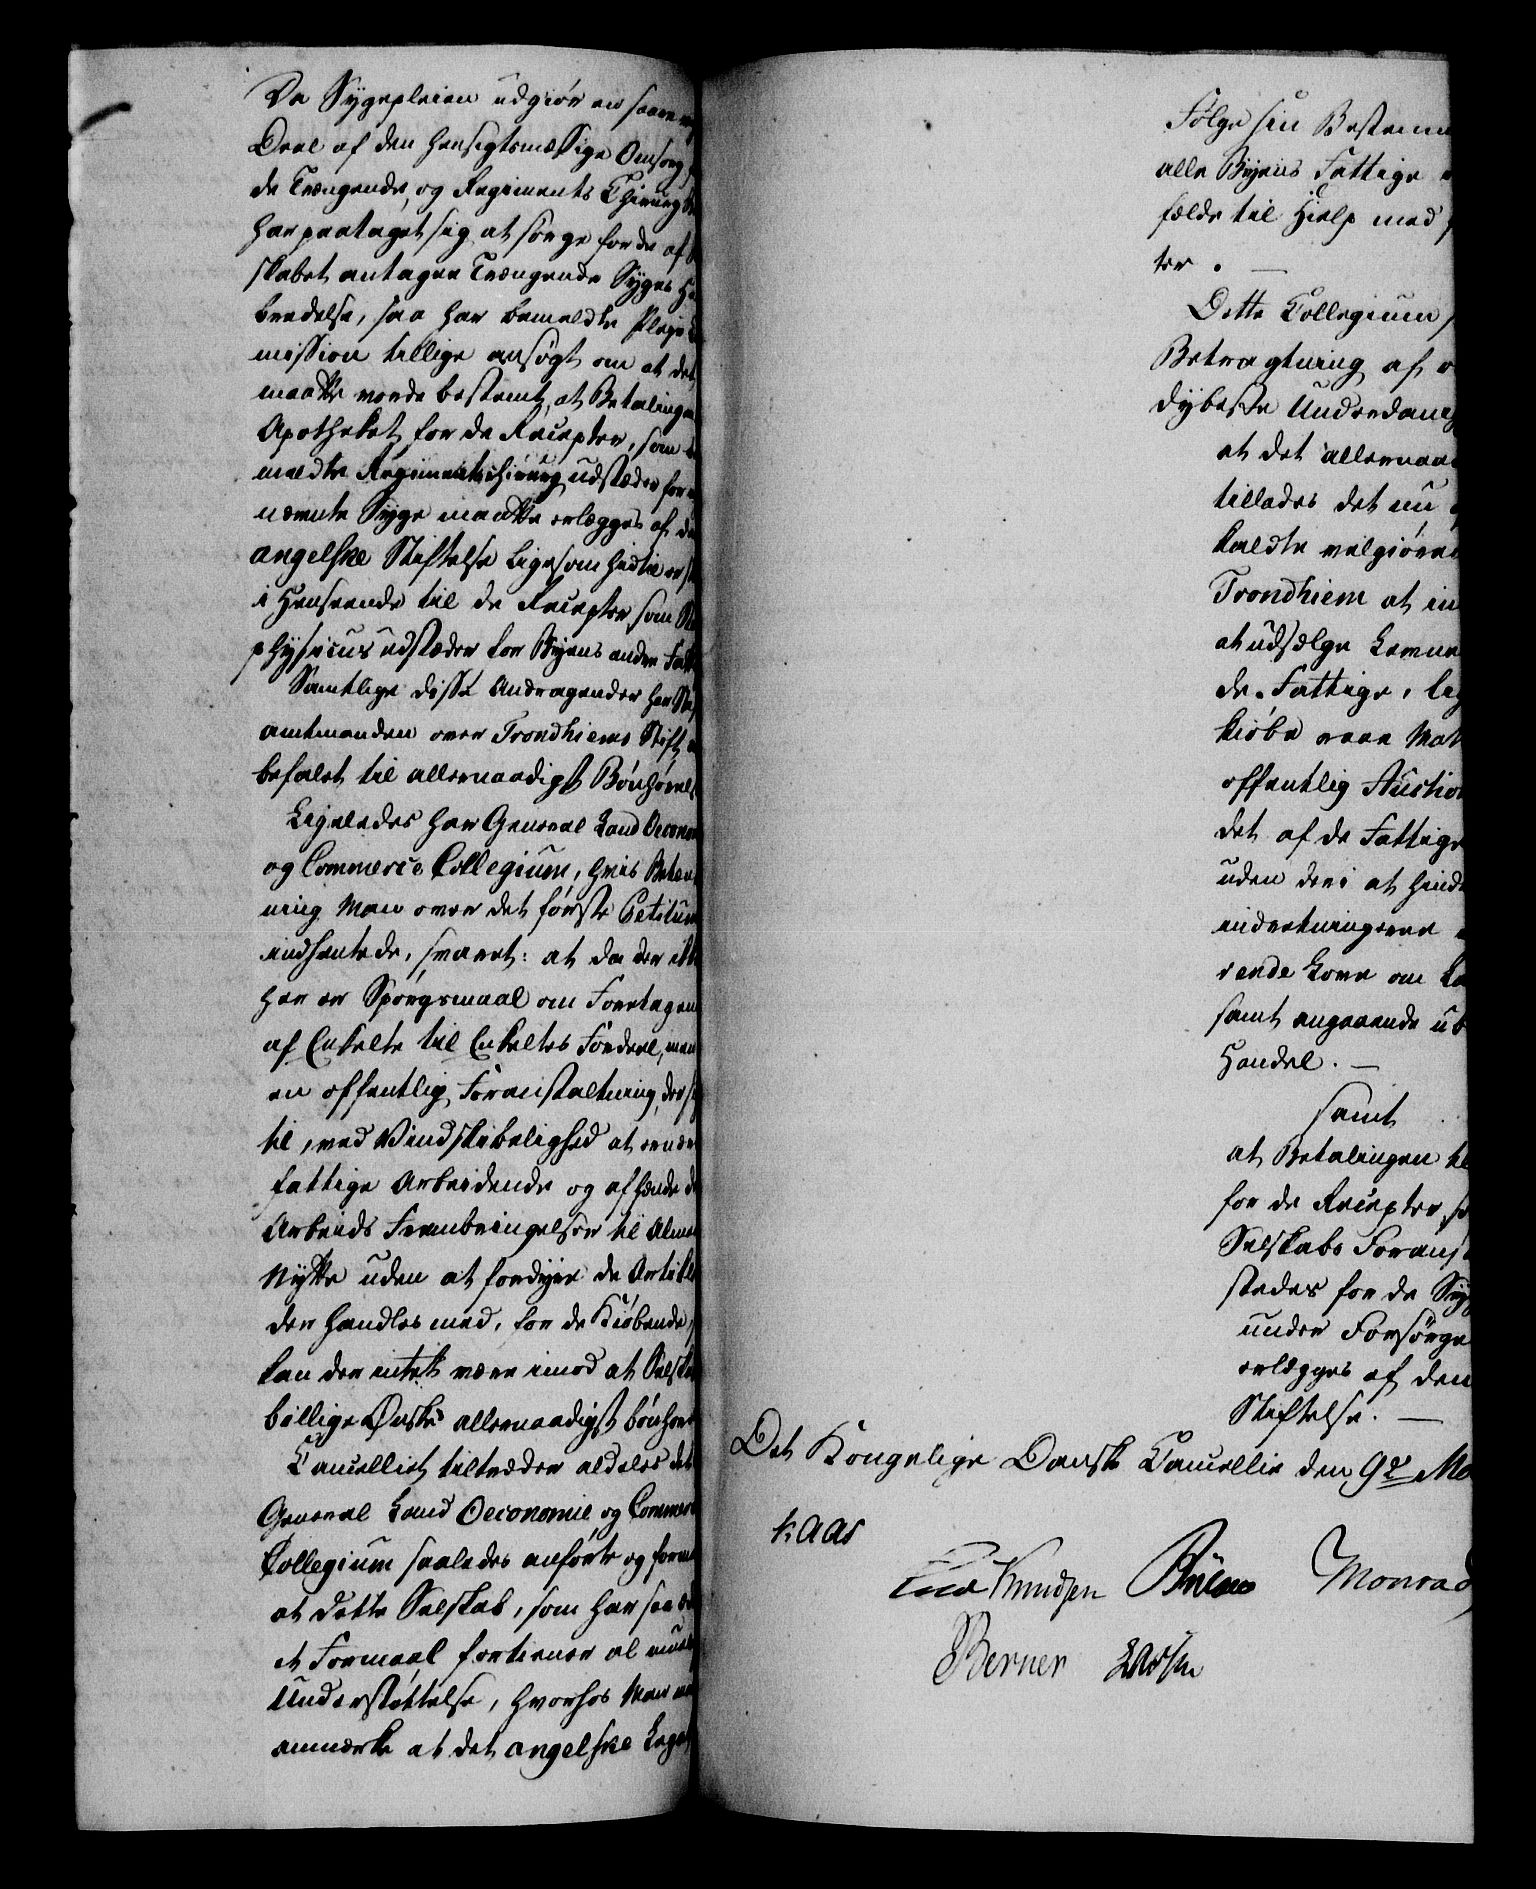 Da Sygepleien udgiør en saare
Deel af den hensigtsmæssige Omsorg
de Trængende, og Regiments Chirurg
har paataget sig at sørge for de af
skabet antagne Trængende Syges
bredelse, saa har bemeldte Pleie
mission tillige ansøgt om at det
maatte vorde bestemt, at Betalingen
Apotheket for de Recepter, som
meldte Regimentschirurg udstæder for
nævnte Syge maatte erlægges af
angelske Stiftelse ligesom hidtil er
i Henseende til de Recepter som
physicus udstæder for Byens andre
Samtlige disse Andragender har
amtmanden over Trondhiems Stift
befalet til allernaadigst Bønhørelse
Ligeledes har General Land Oeconomie
og Commerce Collegium, hvis Betænk
ning Man over det første Petitum
indhentede, svaret: at da der ikke
her er Spørgsmaal om Foretagen
af Enkelte til Enkeltes Fordeel, men
en offentlig Foranstaltning, der
til, med Vindskibelighed at ernære
fattige Arbeidende og afhænde
Arbeids Frembringelser til Almeen
Nytte uden at fordyre de Artikler
der handles med, for de Kiøbende,
kan der intet være imod at Selskabets
billige Ønske allernaadigst bønhøres
Cancelliet tiltræder aldeles det
General Land Oeconomie og Commerce
Collegium saaledes anførte og form
at dette Selskab, som har saa
et Formaal fortiener al
Understøttelse, hvorhos Man
anmærke at det angelske Legat
Følge sin Bestemm
alle Byens Fattige
fælde til Hielp med
ter. —
Dette Collegium
Betragtning af
dybeste Underdanig
at det allernaa
tillades det nu
kaldte velgiøren
Trondhiem at in
at udsælge
de Fattige, lig
kiøbe raae Mat
offentlig Auction
det af de Fattige
uden deri at hind
indretningerne
rende Love om
samt angaaende
Handel. —
samt
at Betalingen til
for de Recepter, s
Selskabs Foranst
stedes for de Syg
under Forsørge
erlægges af den
Stiftelse. —
Det Kongelige Danske Cancellie den 9de
Kaas
Knudsen Bülow Monrad
Berner Lassen